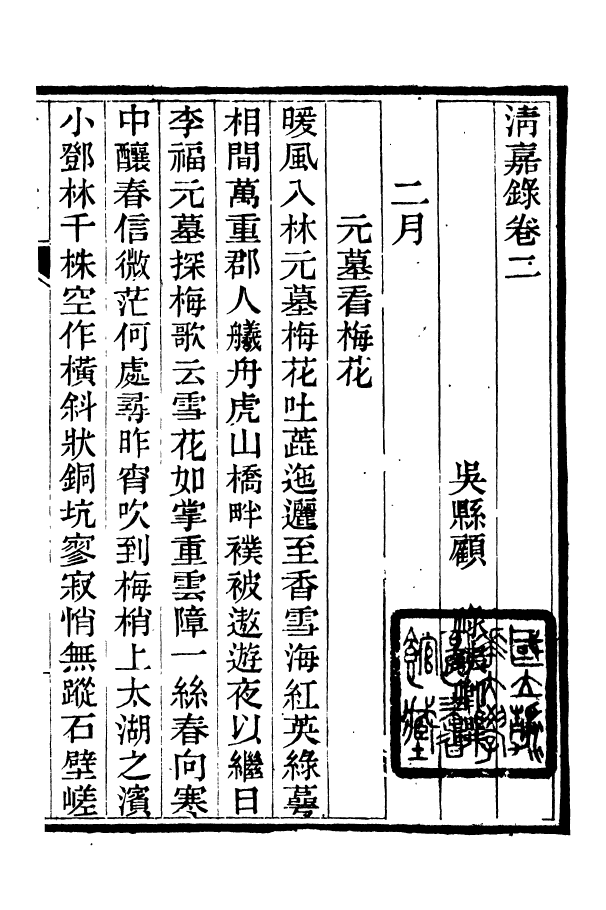 清嘉錄卷二
吳縣顧 祿
二月
元墓看梅花
暖風入林元墓梅花吐蕋迤邐至香雪海紅英綠萼
相間萬重郡人艤舟虎山橋畔襆被遨遊夜以繼日
李福元墓探梅歌云雪花如掌重雲障一絲春向寒
中釀春信微茫何處尋昨宵吹到梅梢上太湖之濱
小鄧林千株空作橫斜狀銅坑寥寂悄無蹤石壁嵯